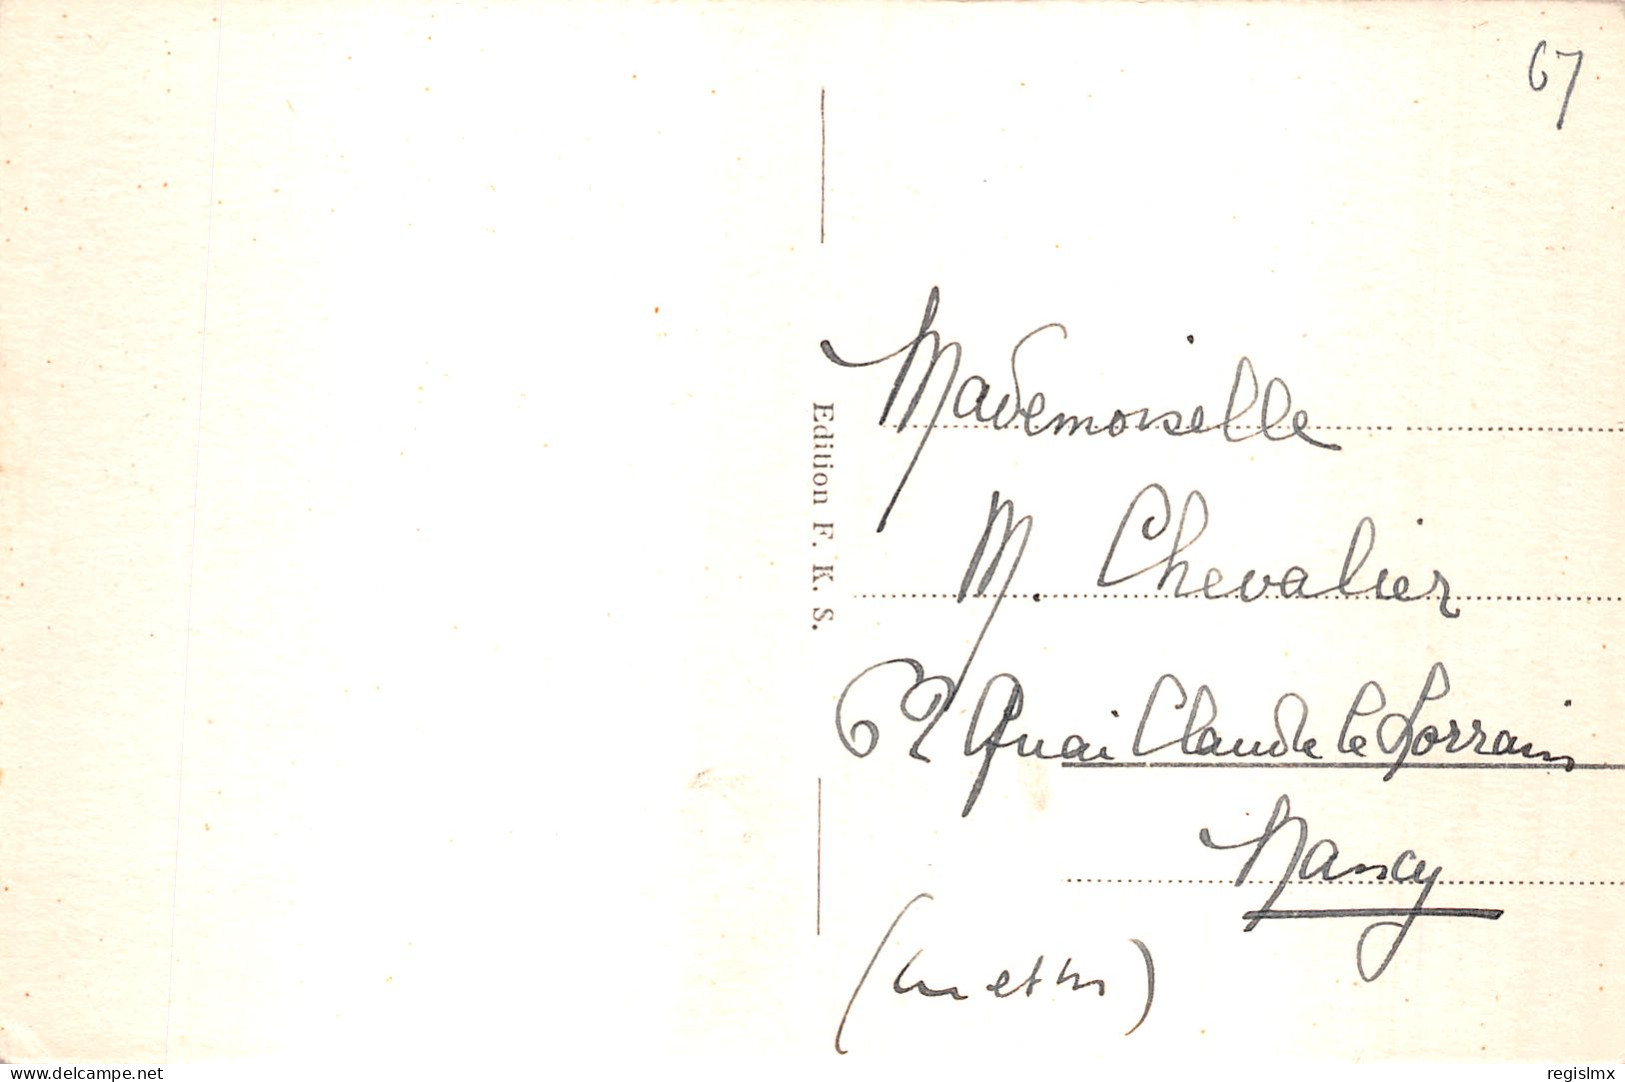 67
Edition F. K. S.
Mademoiselle
M. Chevalier
62 Quai Claude le Lorrain
Nancy
(M et M)
www.delcampe.net
regislmx